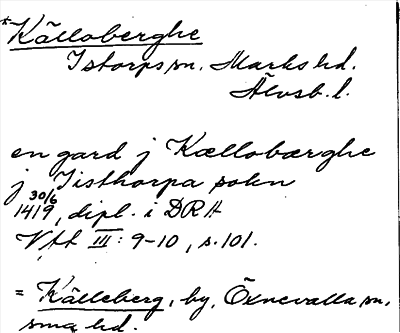 *Källoberghe
Istorps sn. Marks hd.
Älvsb. l.
en gard j Kælloberghe
j Iisthorpa sokn
30/6
1419, dipl. i DRA
VFT III: 9-10, s. 101.
= Källeberg, by, Öxnevalla sn,
sma hd.